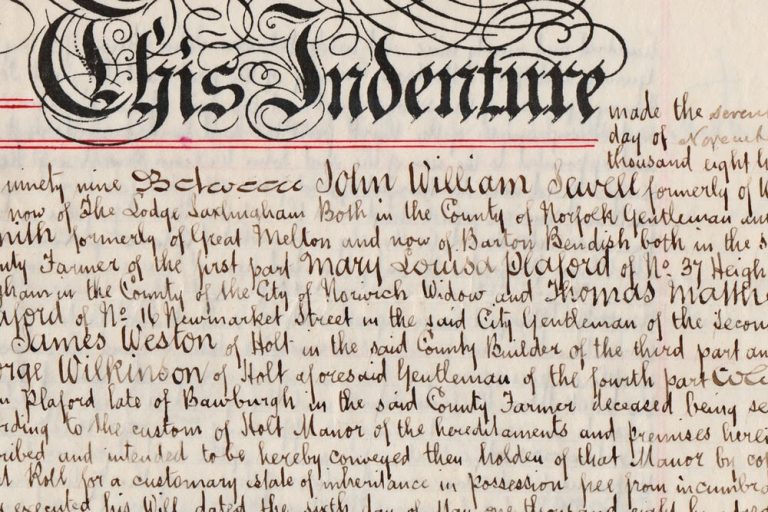 This Indenture
made the seven
day of Novemb
thousand eight h
ninety nine Between John William Sewell formerly of W
now of The Lodge Saxlingham Both in the County of Norfolk Gentleman an
mith formerly of Great Melton and now of Barton Bendish both in the s
nty Farmer of the first part Mary Louisa Plaford of No. 37 Heigh
gham in the County of the City of Norwich Widow and Thomas Matth
aford of No 16 Newmarket Street in the said City Gentleman of the Secon
James Weston of Holt in the said County Builder of the third part an
orge Wilkinson of Holt aforesaid Gentleman of the fourth part
n Plaford late of Bawburgh in the said County Farmer deceased being se
rding to the custom of Holt Manor of the hereditaments and premises herei
ribed and intended to be hereby conveyed then holden of that Manor by cop
t Roll for a customary estate of inheritance in possession free from incumbra
executed his Will dated the sixth day of May one thousand eight hundred